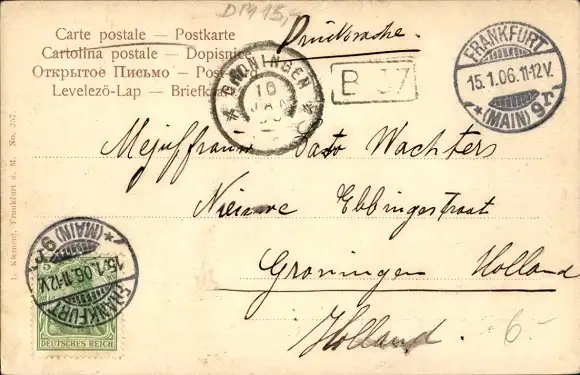 DM 15,-
Drucksache.
Carte postale — Postkarte
Cartolina postale — Dopisnice
Открытое Письмо — Post
Levelező-Lap — Briefka
GRONINGEN
JAN
B 37
FRANKFURT
15.1.06.11-12V.
*(MAIN) 9r*
Mejuffrouw Wachters
Nieuwe Ebbingestraat
Groningen Holland
Holland.
6.-
L. Klement, Frankfurt a. M. No. 257.
FRANKFURT
15.1.06.11-12V.
*(MAIN) 9r*
5
DEUTSCHES REICH